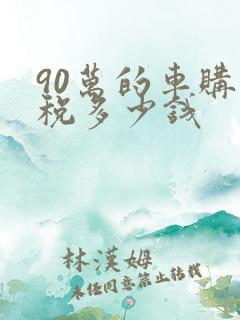 90萬的車購
稅多少錢
林漢姆
未經同意禁止轉載